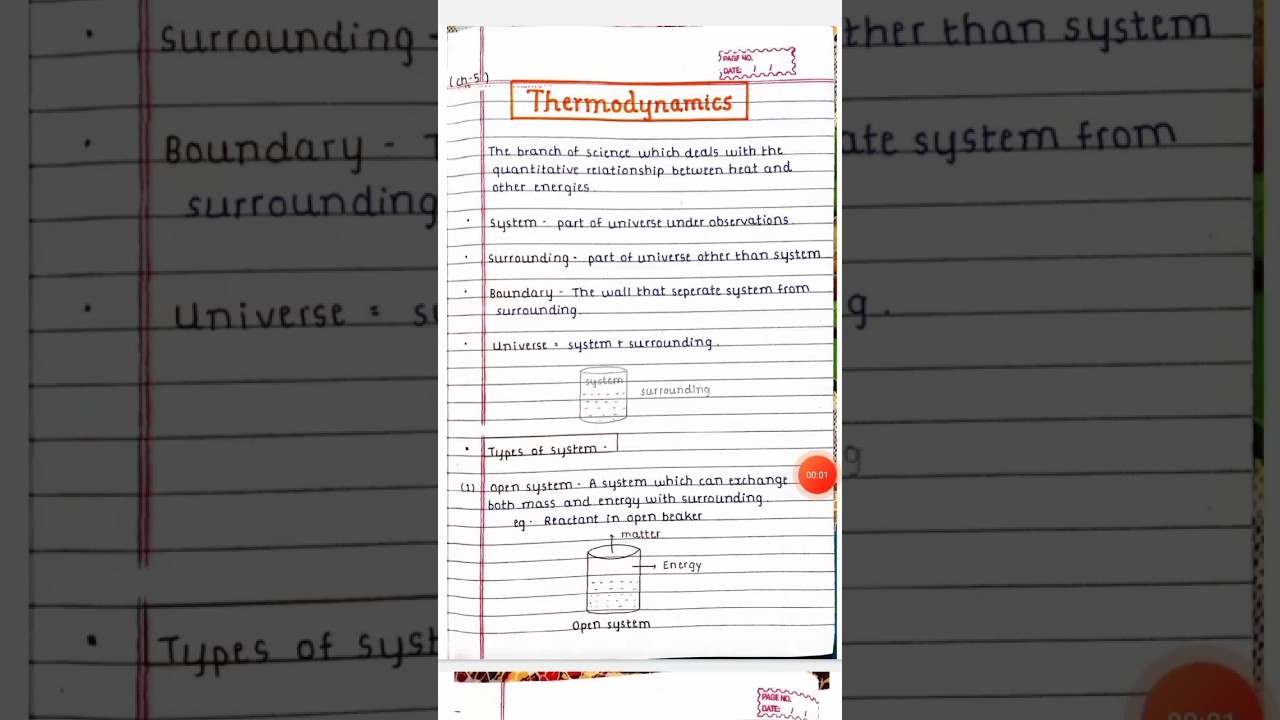 PAGE NO.
DATE: / /
(ch-5)
Thermodynamics
The branch of science which deals with the
quantitative relationship between heat and
other energies.
• system - part of universe under observations.
• surrounding - part of universe other than system
• Boundary - The wall that seperate system from
surrounding.
• Universe = system + surrounding.
system
surrounding
• Types of system -
(1) open system - A system which can exchange
both mass and energy with surrounding.
eg. Reactant in open beaker
matter
Energy
Open system
00:01
PAGE NO.
DATE: / /
• surrounding -
ther than system
• Boundary -
ate system from
surrounding
• Universe =
g.
• Types of syst
00:01